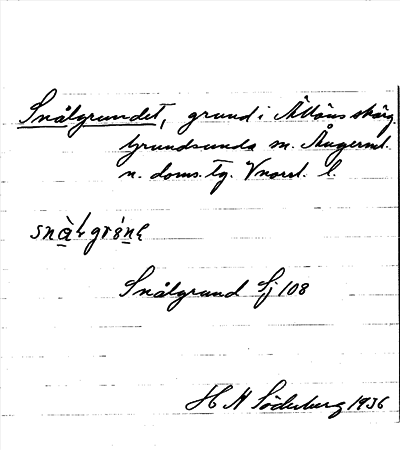 Snålgrundet, grund i Ållöns skärg.
Grundsunda sn. Ångerml.
n. doms. tg. Vnorrl. l.
Snålgrund Sj 108
H A Söderberg 1936